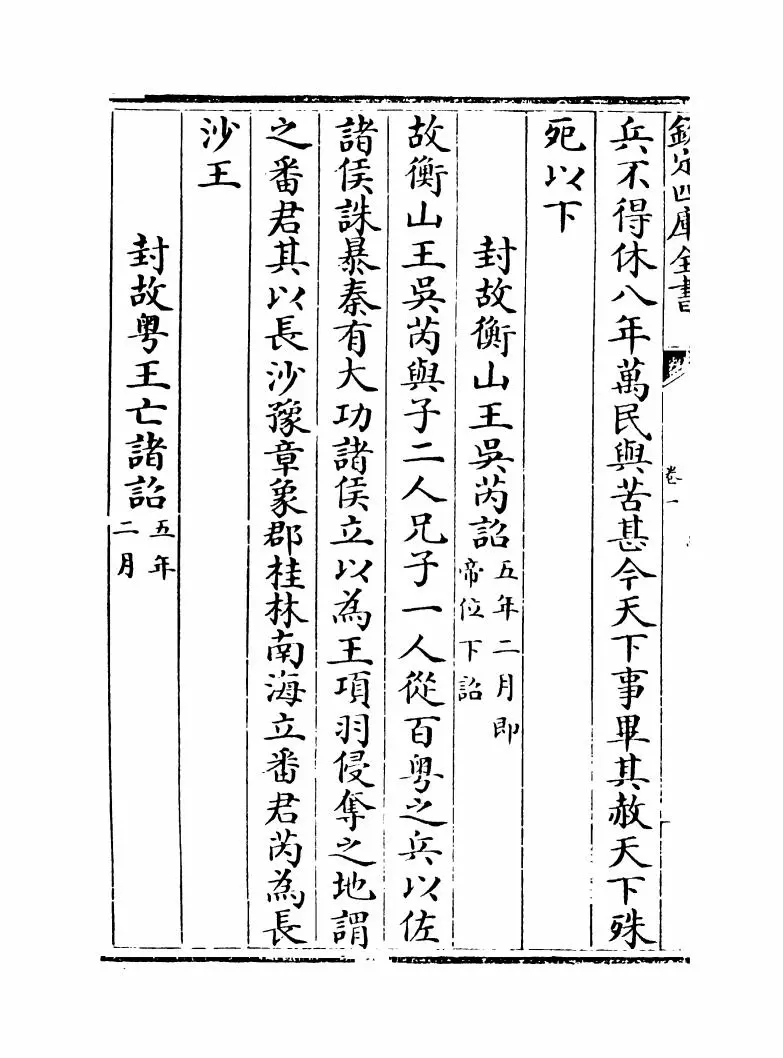 欽定四庫全書
卷一
兵不得休八年萬民與苦甚今天下事畢其赦天下殊
死以下
封故衡山王吳芮詔五年二月即帝位下詔
故衡山王吳芮與子二人兄子一人從百粵之兵以佐
諸侯誅暴秦有大功諸侯立以為王項羽侵奪之地謂
之番君其以長沙豫章象郡桂林南海立番君芮為長
沙王
封故粵王亡諸詔五年二月